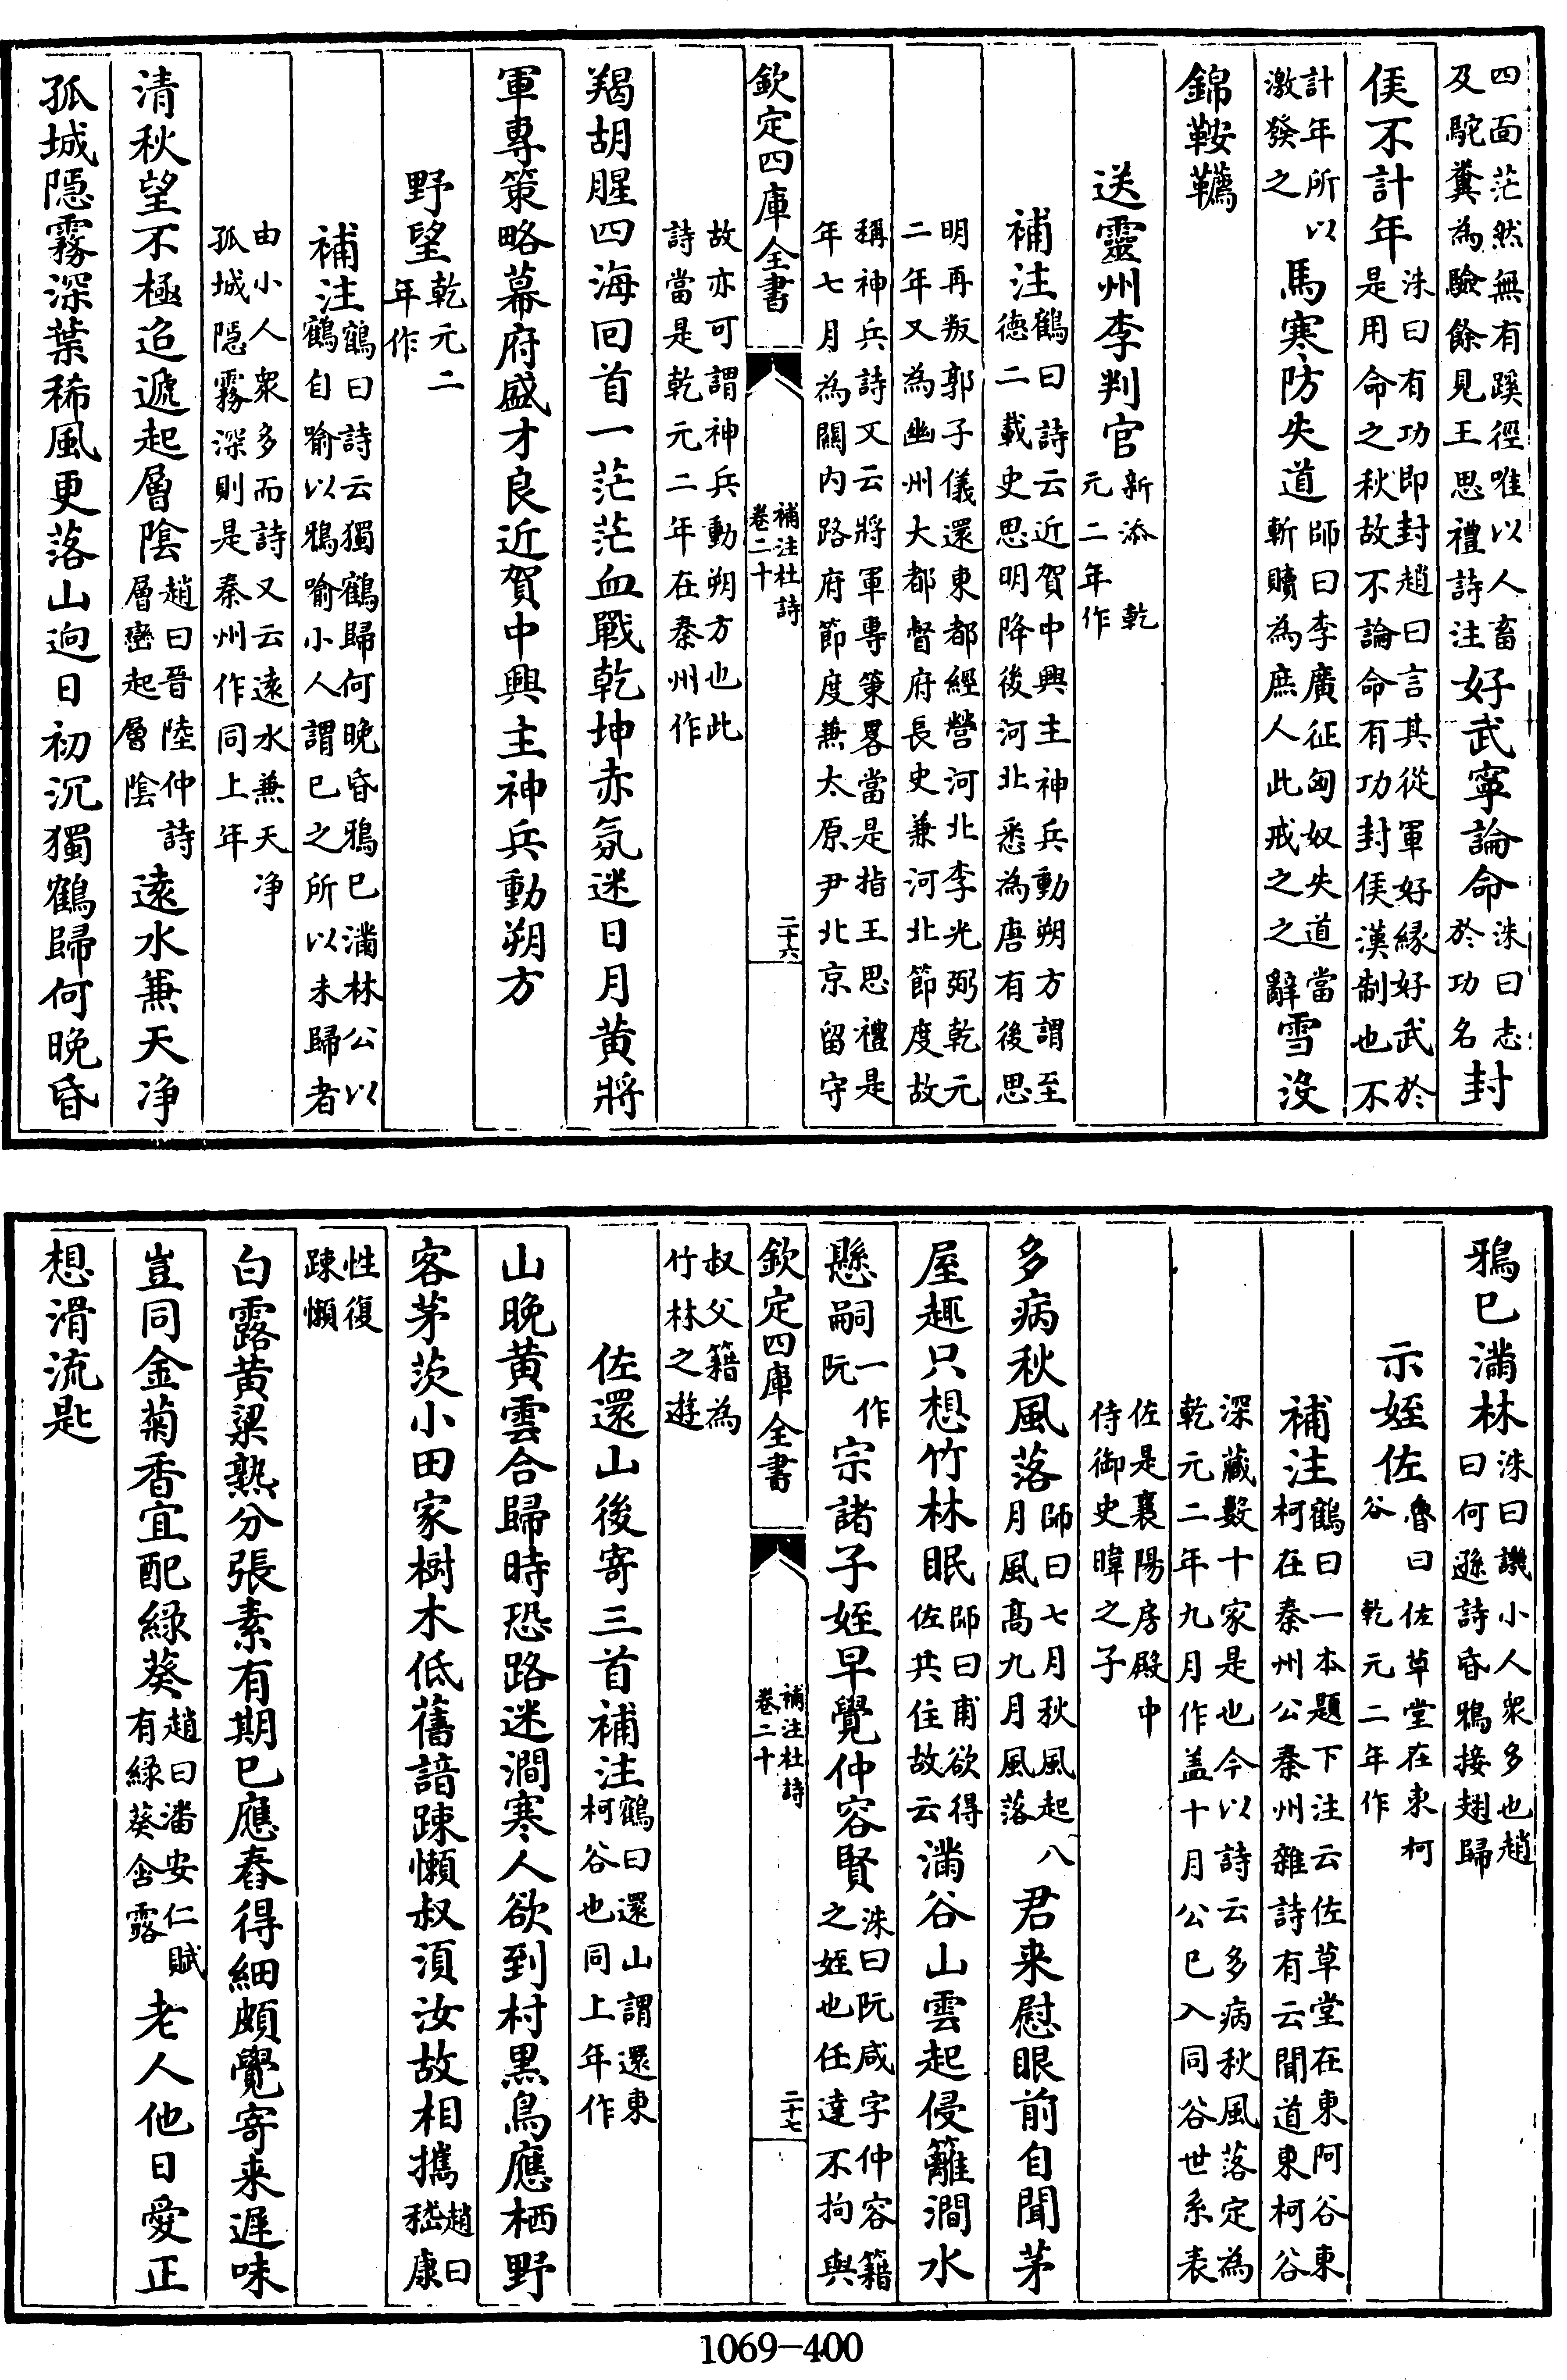 四面茫然無有蹊徑唯以人畜
及駝糞為驗餘見王思禮詩注好武寧論命洙曰志於功名封
侯不計年洙曰有功即封趙曰言其從軍好緣好武於
是用命之秋故不論命有功封侯漢制也不
計年所以
激發之馬寒防失道師曰李廣征匈奴失道當
斬贖為庶人此戒之之辭雪没
錦鞍韉
送靈州李判官新添 乾
元二年作
補注鶴曰詩云近賀中興主神兵動朔方謂至
德二載史思明降後河北悉為唐有後思
明再叛郭子儀還東都經營河北李光弼乾元
二年又為幽州大都督府長史兼河北節度故
稱神兵詩又云將軍專策畧當是指王思禮是
年七月為關内路府節度兼太原尹北京留守
欽定四庫全書
補注杜詩
卷二十
二十六
故亦可謂神兵動朔方也此
詩當是乾元二年在秦州作
羯胡腥四海回首一茫茫血戰乾坤赤氛迷日月黄將
軍專策略幕府盛才良近賀中興主神兵動朔方
野望乾元二
年作
補注鶴曰詩云獨鶴歸何晚昏鴉已滿林公以
鶴自喻以鴉喻小人謂已之所以未歸者
由小人衆多而詩又云遠水兼天净
孤城隠霧深則是秦州作同上年
清秋望不極迢遞起層陰趙曰晋陸仲詩
層巒起層陰遠水兼天净
孤城隠霧深葉稀風更落山迥日初沉獨鶴歸何晚昏
鴉已滿林洙曰譏小人衆多也趙
曰何遜詩昏鴉接翅歸
示姪佐魯曰佐草堂在東柯
谷 乾元二年作
補注鶴曰一本題下注云佐草堂在東阿谷東
柯在秦州公秦州雜詩有云聞道東柯谷
深藏數十家是也今以詩云多病秋風落定為
乾元二年九月作盖十月公已入同谷世系表
佐是襄陽房殿中
侍御史暐之子
多病秋風落師曰七月秋風起八
月風高九月風落君来慰眼前自聞茅
屋趣只想竹林眠師曰甫欲得
佐共住故云滿谷山雲起侵籬澗水
懸嗣一作
阮宗諸子姪早覺仲容賢洙曰阮咸字仲容籍
之姪也任達不拘與
欽定四庫全書
補注杜詩
卷二十
二十七
叔父籍為
竹林之遊
佐還山後寄三首補注鶴曰還山謂還東
柯谷也同上年作
山晚黄雲合歸時恐路迷澗寒人欲到村黒鳥應栖野
客茅茨小田家樹木低舊諳踈懶叔須汝故相攜趙曰
嵇康
性復
踈懶
白露黄粱熟分張素有期已應舂得細頗覺寄来遲味
豈同金菊香宜配緑葵趙曰潘安仁賦
有緑葵含露老人他日愛正
想滑流匙
1069-400